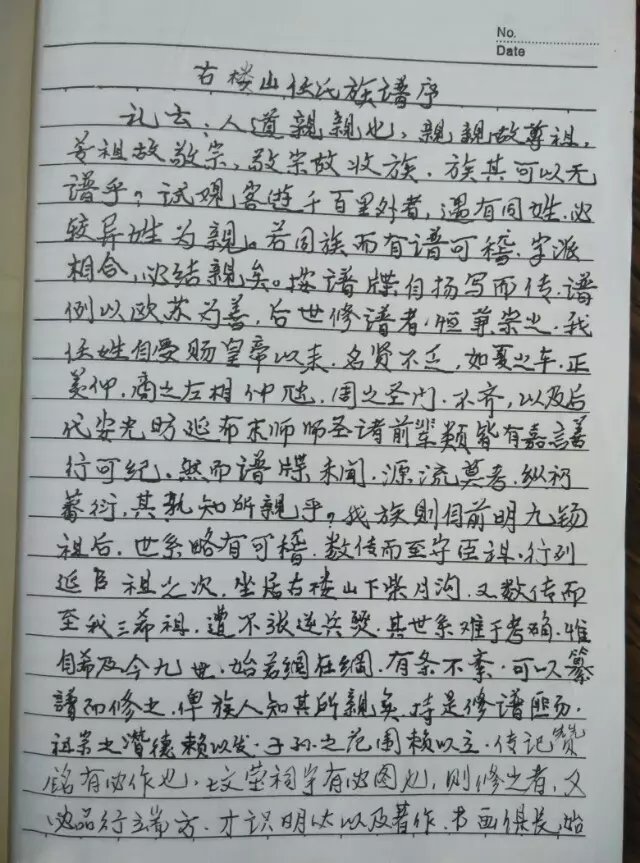 No.
Date
古楼山任氏族谱序
礼云：人道親親也，親親故尊祖，
尊祖故敬宗，敬宗故收族．族其可以无
谱乎？试观客遊千百里外者，遇有同姓，必
较异姓为親。若同族而有谱可稽．字派
相合，必结親矣。按谱牒自扬写而传．谱
例以欧苏为善．后世修谱者．恒尊崇之．我
任姓自受赐皇帝以来．名贤不乏，如夏之车．正
奚仲．商之左相仲虺．周之圣门．不齐，以及后
代安光昉延布末师师圣诸前辈类皆有嘉言善
行可纪、然而谱牒未闻．源流莫考．纵衍
蕃衍．其孰知所親乎？我族则自前明九
祖后．世系略有可稽．数传而至守臣祖．行列
延 祖之次．坐居古楼山下柴月沟．又数传而
至我三希祖．遭不张逆兵燹．其世系难于考确．惟
自希及今九世．始若綱在綱．有条不紊．可以纂
譜而修之．俾族人知其所親矣．持是修谱匪易．
祖宗之潜德赖以发．子孙之范围赖以立．传记赞
铭有必作也．坟茔祠宇有必图也，则修之者．又
必品行端方．才识明达以及著作．书画俱長．始